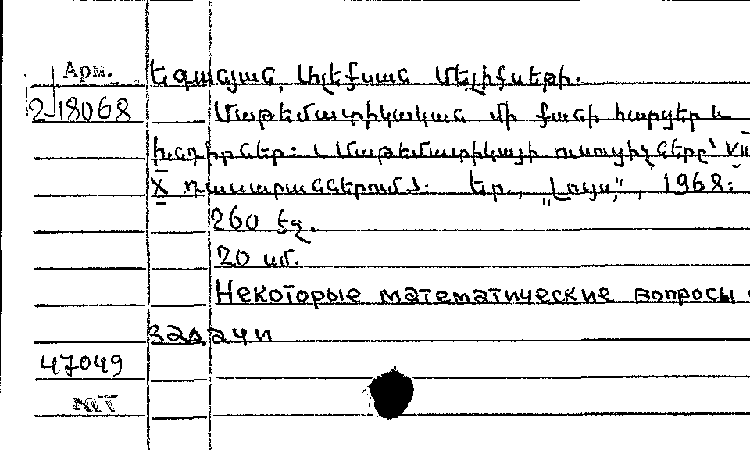 Арм.
Եգանյան, Ալեքսան Մելիքսեթի.
2 18068
Մաթեմատիկական մի քանի հարցեր և
խնդիրներ: Մաթեմատիկայի ուսուցիչները՝ VII
X դասարաններում: Եր., „Լույս", 1968:
260 էջ.
20 սմ.
Некоторые математические вопросы
задачи
47049
мт